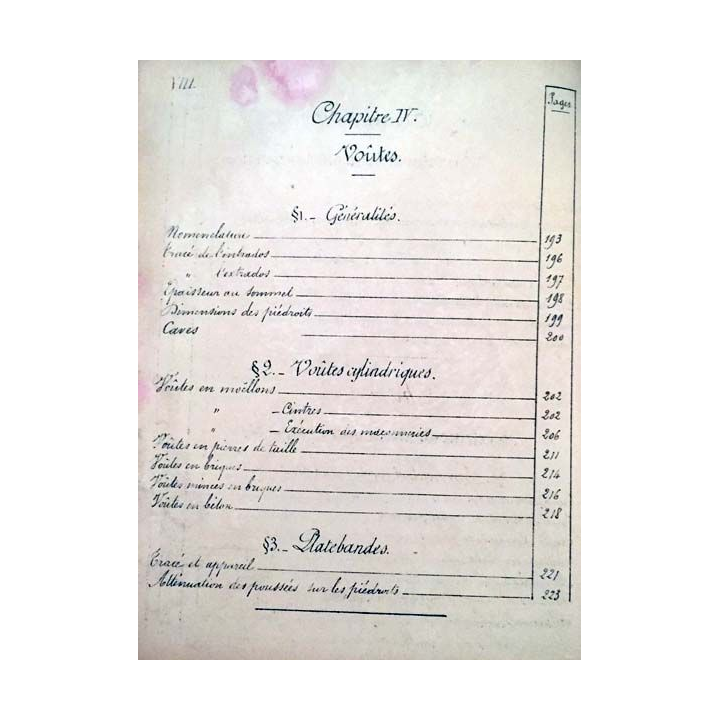 VIII.
Pages
Chapitre IV.
Voûtes.
§1.- Généralités.
Nomenclature 193
Tracé de l'intrados 196
" l'extrados 197
Epaisseur au sommet 198
Dimensions des piédroits 199
Caves 200
§2.- Voûtes cylindriques.
Voûtes en moëllons 202
" - Cintres 202
" - Exécution des maçonneries 206
Voûtes en pierres de taille 211
Voûtes en briques 214
Voûtes minces en briques 216
Voûtes en béton 218
§3.- Platebandes.
Tracé et appareil 221
Atténuation des poussées sur les piédroits 223